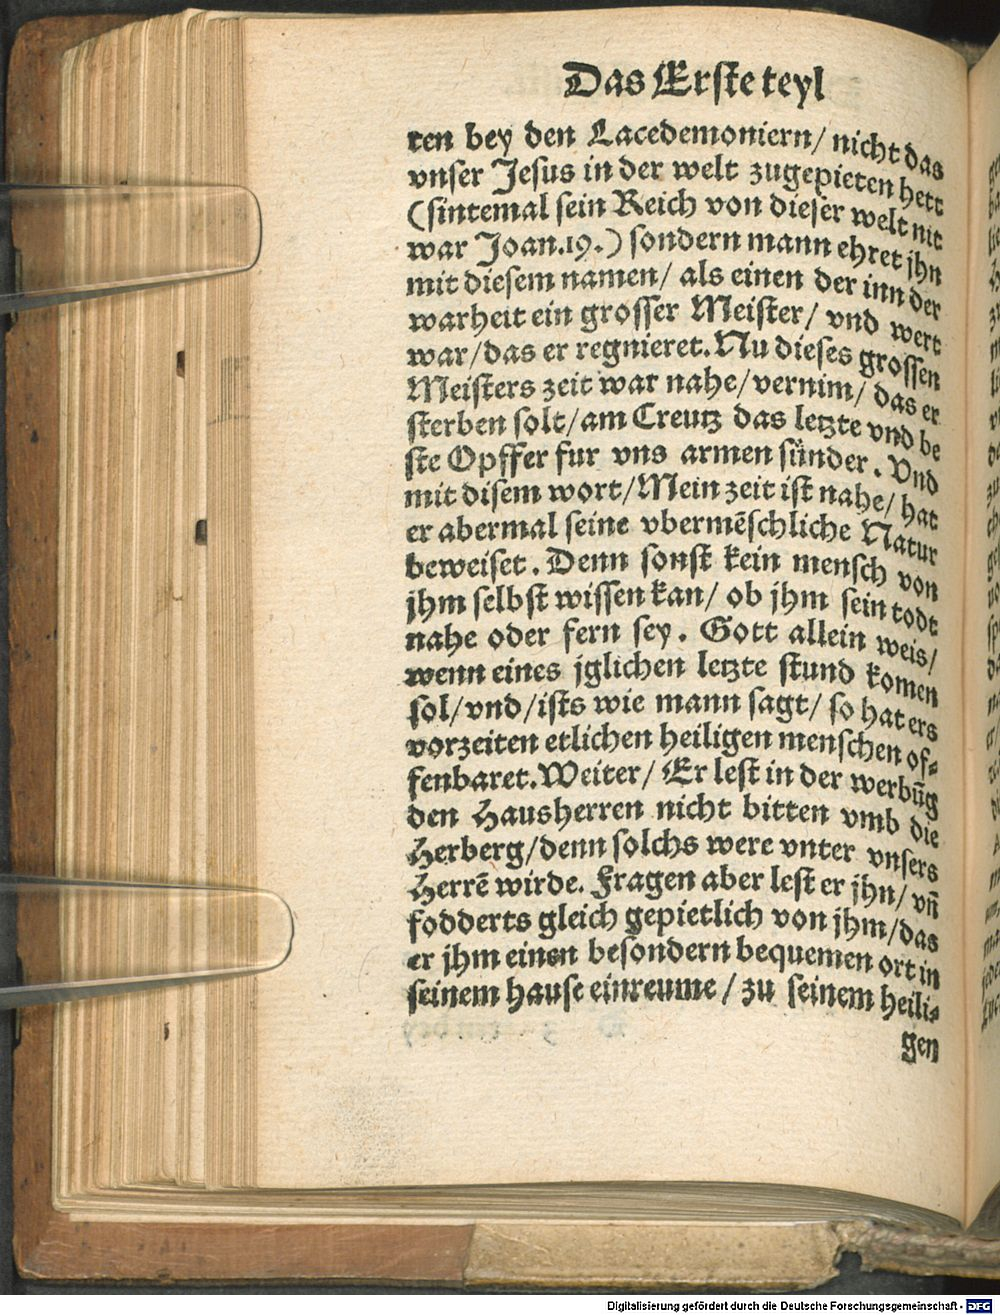 Das Erste teyl
ren bey den Lacedemoniern/ nicht das
vnser Jesus in der welt zugepieten hett
(sintemal sein Reich von dieser welt nit
war Joan.19.) sondern mann ehret jhn
mit diesem namen/ als einen der inn der
warheit ein grosser Meister/ vnd wert
war/das er regnieret. Nu dieses grossen
Meisters zeit war nahe/vernim/ das er
sterben solt/am Creutz das letzte vnd be
ste Opffer fur vns armen sünder. Vnd
mit disem wort/Mein zeit ist nahe/ hat
er abermal seine vbermēschliche Natur
beweiset. Denn sonst kein mensch von
jhm selbst wissen kan/ ob jhm sein todt
nahe oder fern sey. Gott allein weis/
wenn eines jglichen letzte stund komen
sol/vnd/ists wie mann sagt/ so hat ers
vorzeiten etlichen heiligen menschen of=
fenbaret. Weiter/ Er lest in der werbūg
den Hausherren nicht bitten vmb die
Herberg/denn solchs were vnter vnsers
Herrē wirde. Fragen aber lest er jhn/ vn̄
fodderts gleich gepietlich von jhm/das
er jhm einen besondern bequemen ort in
seinem hause einreume/ zu seinem heili=
gen
Digitalisierung gefördert durch die Deutsche Forschungsgemeinschaft - DFG